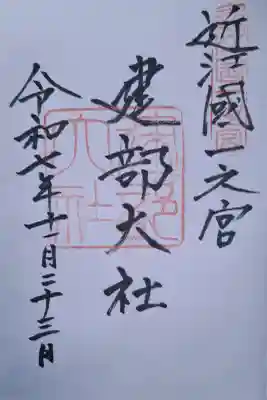 近江國一之宮
建部大社
令和七年十一月二十三日
建部大社